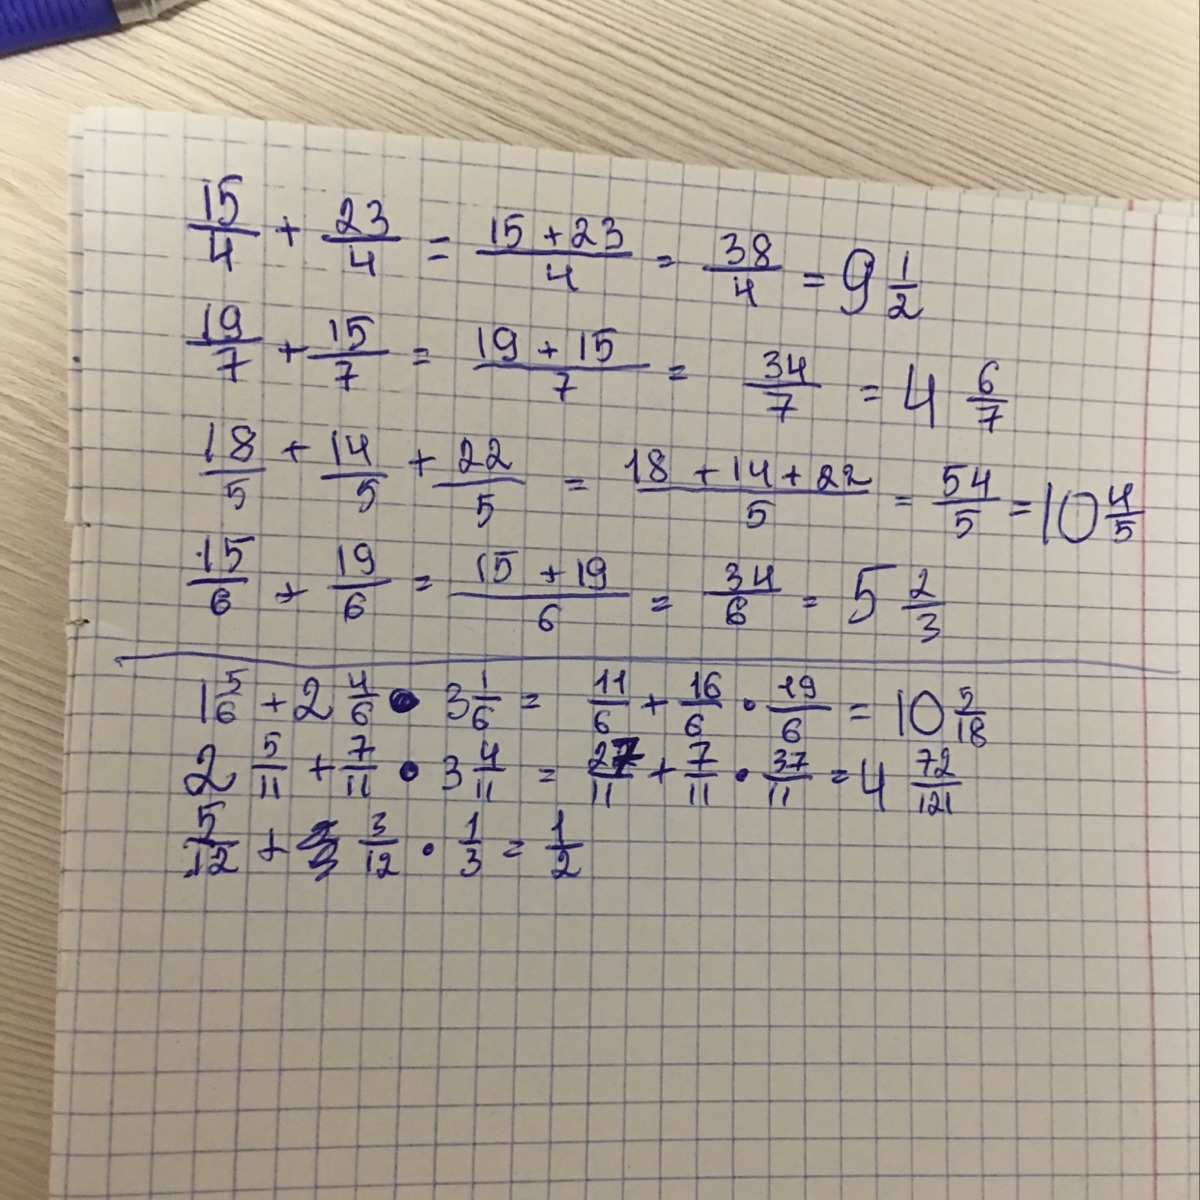 15/4 + 23/4 = 15 + 23/4 = 38/4 = 9 1/2
19/7 + 15/7 = 19 + 15/7 = 34/7 = 4 6/7
18/5 + 14/5 + 22/5 = 18 + 14 + 22/5 = 54/5 = 10 4/5
15/6 + 19/6 = 15 + 19/6 = 34/6 = 5 2/3
1 5/6 + 2 4/6 • 3 1/6 = 11/6 + 16/6 • 19/6 = 10 5/18
2 5/11 + 7/11 • 3 4/11 = 27/11 + 7/11 • 37/11 = 4 72/121
5/12 + 3/12 • 1/3 = 1/2